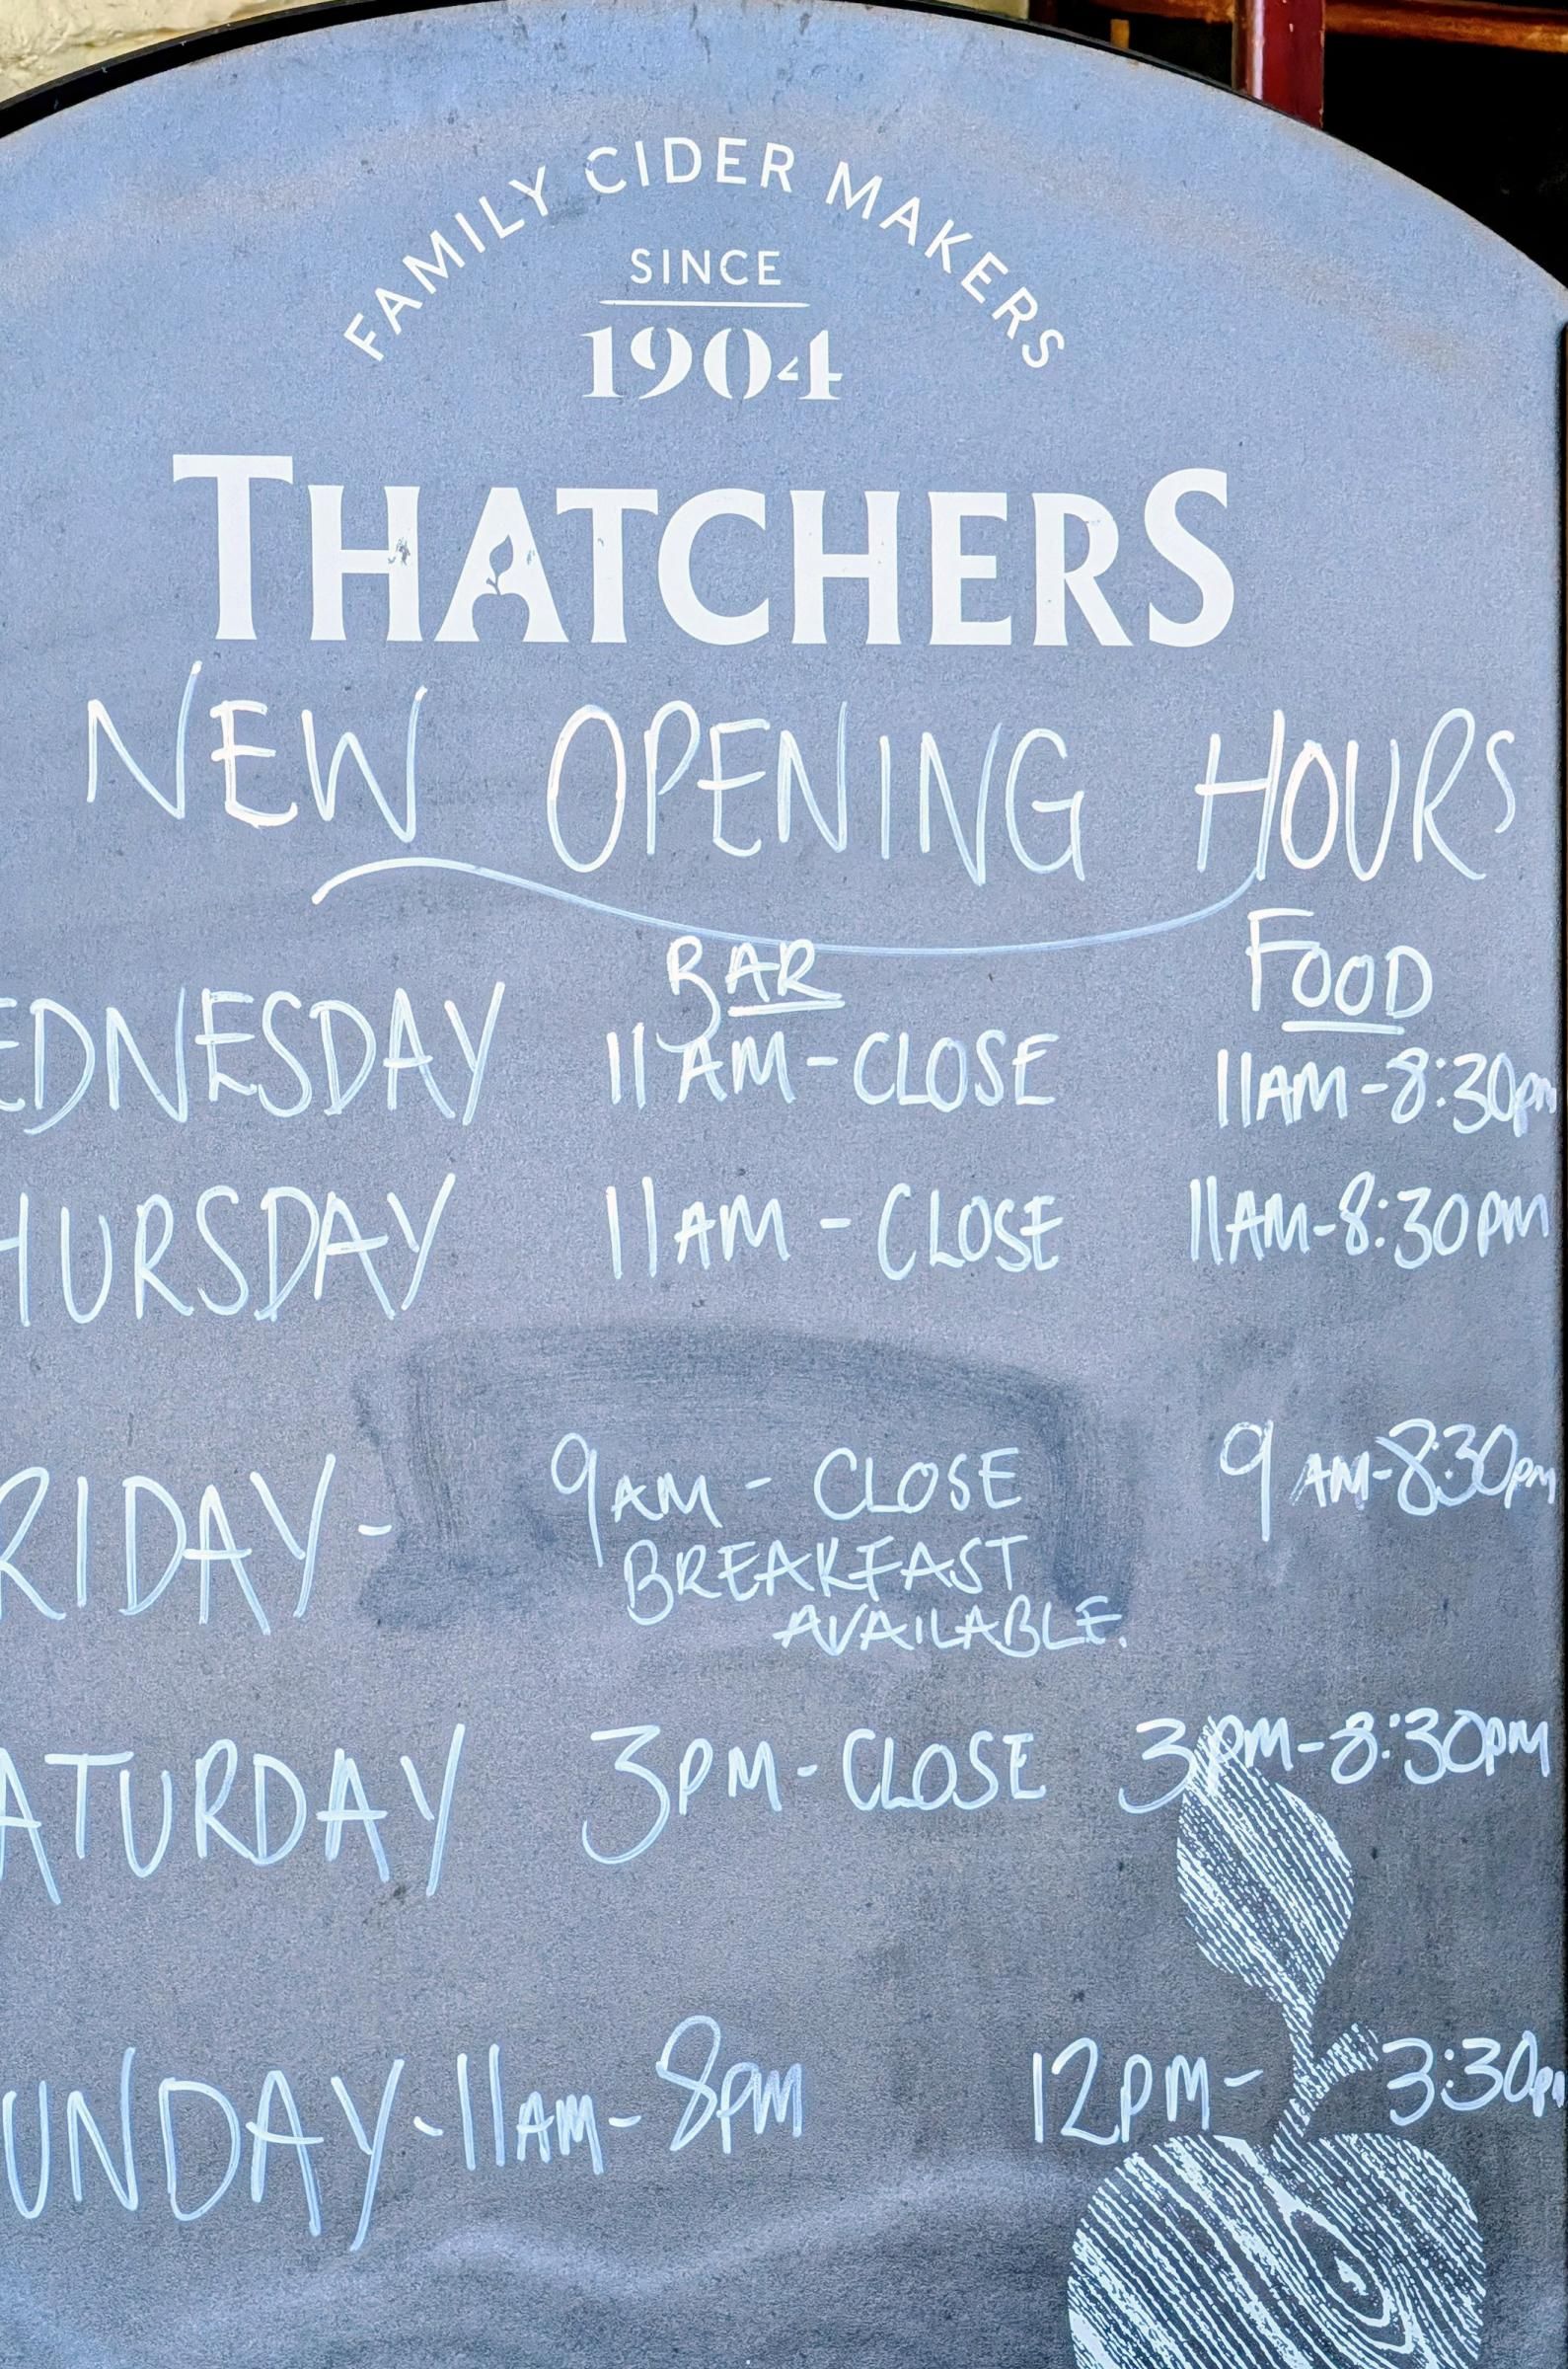 FAMILY CIDER MAKERS
SINCE
1904
THATCHERS
NEW OPENING HOURS
BAR FOOD
EDNESDAY 11AM-CLOSE 11AM-8:30pm
HURSDAY 11AM - CLOSE 11AM-8:30PM
RIDAY- 9AM - CLOSE 9AM-8:30pm
BREAKFAST
AVAILABLE.
ATURDAY 3PM-CLOSE 3PM-8:30PM
UNDAY-11AM-8pm 12PM- 3:30pm